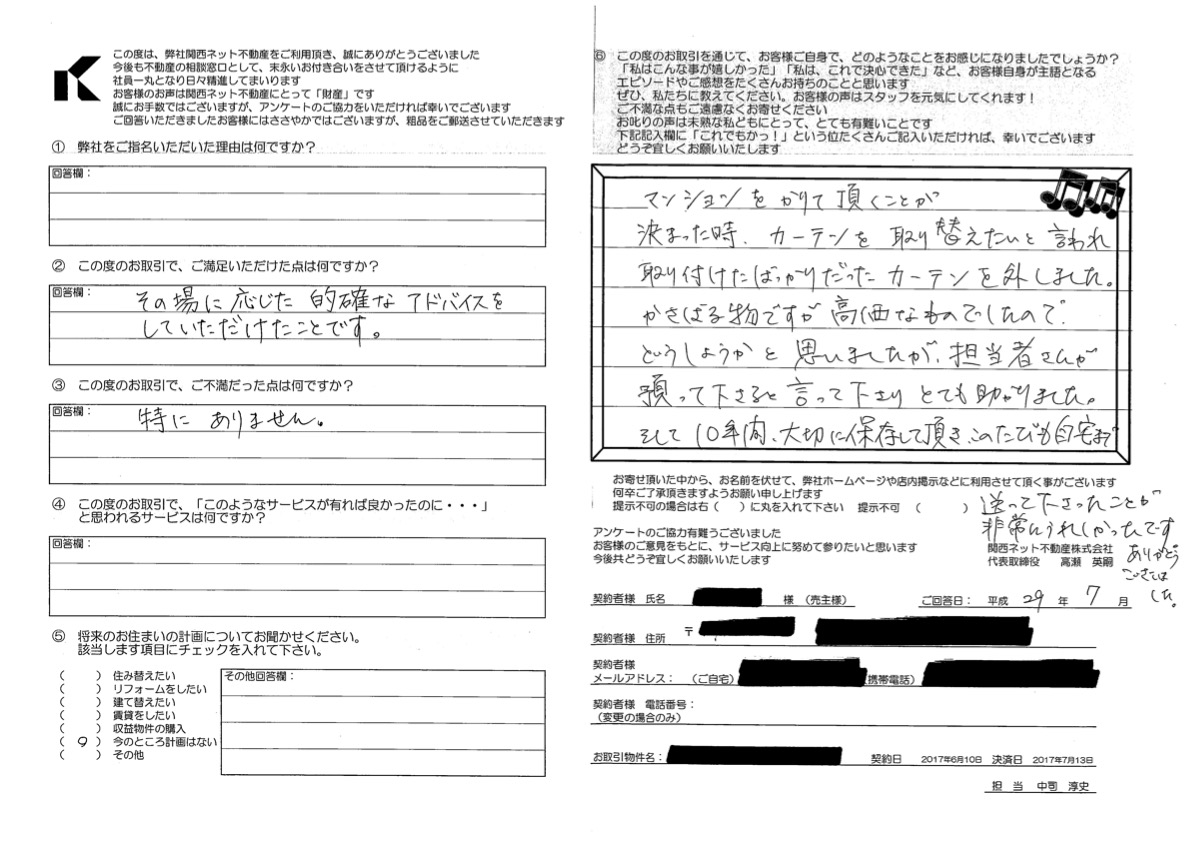 この度は、弊社関西ネット不動産をご利用頂き、誠にありがとうございました
今後も不動産の相談窓口として、末永いお付き合いをさせて頂けるように
社員一丸となり日々精進してまいります
お客様のお声は関西ネット不動産にとって「財産」です
誠にお手数ではございますが、アンケートのご協力をいただければ幸いでございます
ご回答いただきましたお客様にはささやかではございますが、粗品をご郵送させていただきます
① 弊社をご指名いただいた理由は何ですか？
回答欄：
② この度のお取引で、ご満足いただけた点は何ですか？
回答欄：
その場に応じた 的確な アドバイスを
していただけたことです。
③ この度のお取引で、ご不満だった点は何ですか？
回答欄：
特に ありません。
④ この度のお取引で、「このようなサービスが有れば良かったのに・・・」
と思われるサービスは何ですか？
回答欄：
⑤ 将来のお住まいの計画についてお聞かせください。
該当します項目にチェックを入れて下さい。
（　　） 住み替えたい
（　　） リフォームをしたい
（　　） 建て替えたい
（　　） 賃貸をしたい
（　　） 収益物件の購入
（ ○ ） 今のところ計画はない
（　　） その他
その他回答欄：
⑥ この度のお取引を通じて、お客様ご自身で、どのようなことをお感じになりましたでしょうか？
「私はこんな事が嬉しかった」「私は、これで決心できた」など、お客様自身が主語となる
エピソードやご感想をたくさんお持ちのことと思います
ぜひ、私たちに教えてください。お客様の声はスタッフを元気にしてくれます！
ご不満な点もご遠慮なくお寄せください
お叱りの声は未熟な私どもにとって、とても有難いことです
下記記入欄に「これでもかっ！」という位たくさんご記入いただければ、幸いでございます
どうぞ宜しくお願いいたします
マンションを かりて 頂くことが
決まった時、カーテンを 取り替えたいと 言われ
取り付けたばっかりだった カーテンを 外しました。
かさばる物ですが 高価なものでしたので、
どうしょうかと 思いましたが、担当者さんが
預って下さると 言って下さり とても 助かりました。
そして 10年間、大切に 保存して頂き、このたびも 自宅まで
送って下さったことが
非常にうれしかったです
ありがとう
ございま
した。
お寄せ頂いた中から、お名前を伏せて、弊社ホームページや店内掲示などに利用させて頂く事がございます
何卒ご了承頂きますようお願い申し上げます
提示不可の場合は右（　）に丸を入れて下さい　提示不可　（　　　）
アンケートのご協力有難うございました
お客様のご意見をもとに、サービス向上に努めて参りたいと思います
今後共どうぞ宜しくお願いいたします
関西ネット不動産株式会社
代表取締役　高瀬　英嗣
契約者様 氏名　様（売主様）　ご回答日：　平成 29 年 7 月
契約者様 住所　〒
契約者様
メールアドレス：　（ご自宅）　（携帯電話）
契約者様 電話番号：
（変更の場合のみ）
お取引物件名：　契約日　2017年6月10日　決済日　2017年7月13日
担　当　中司　淳史